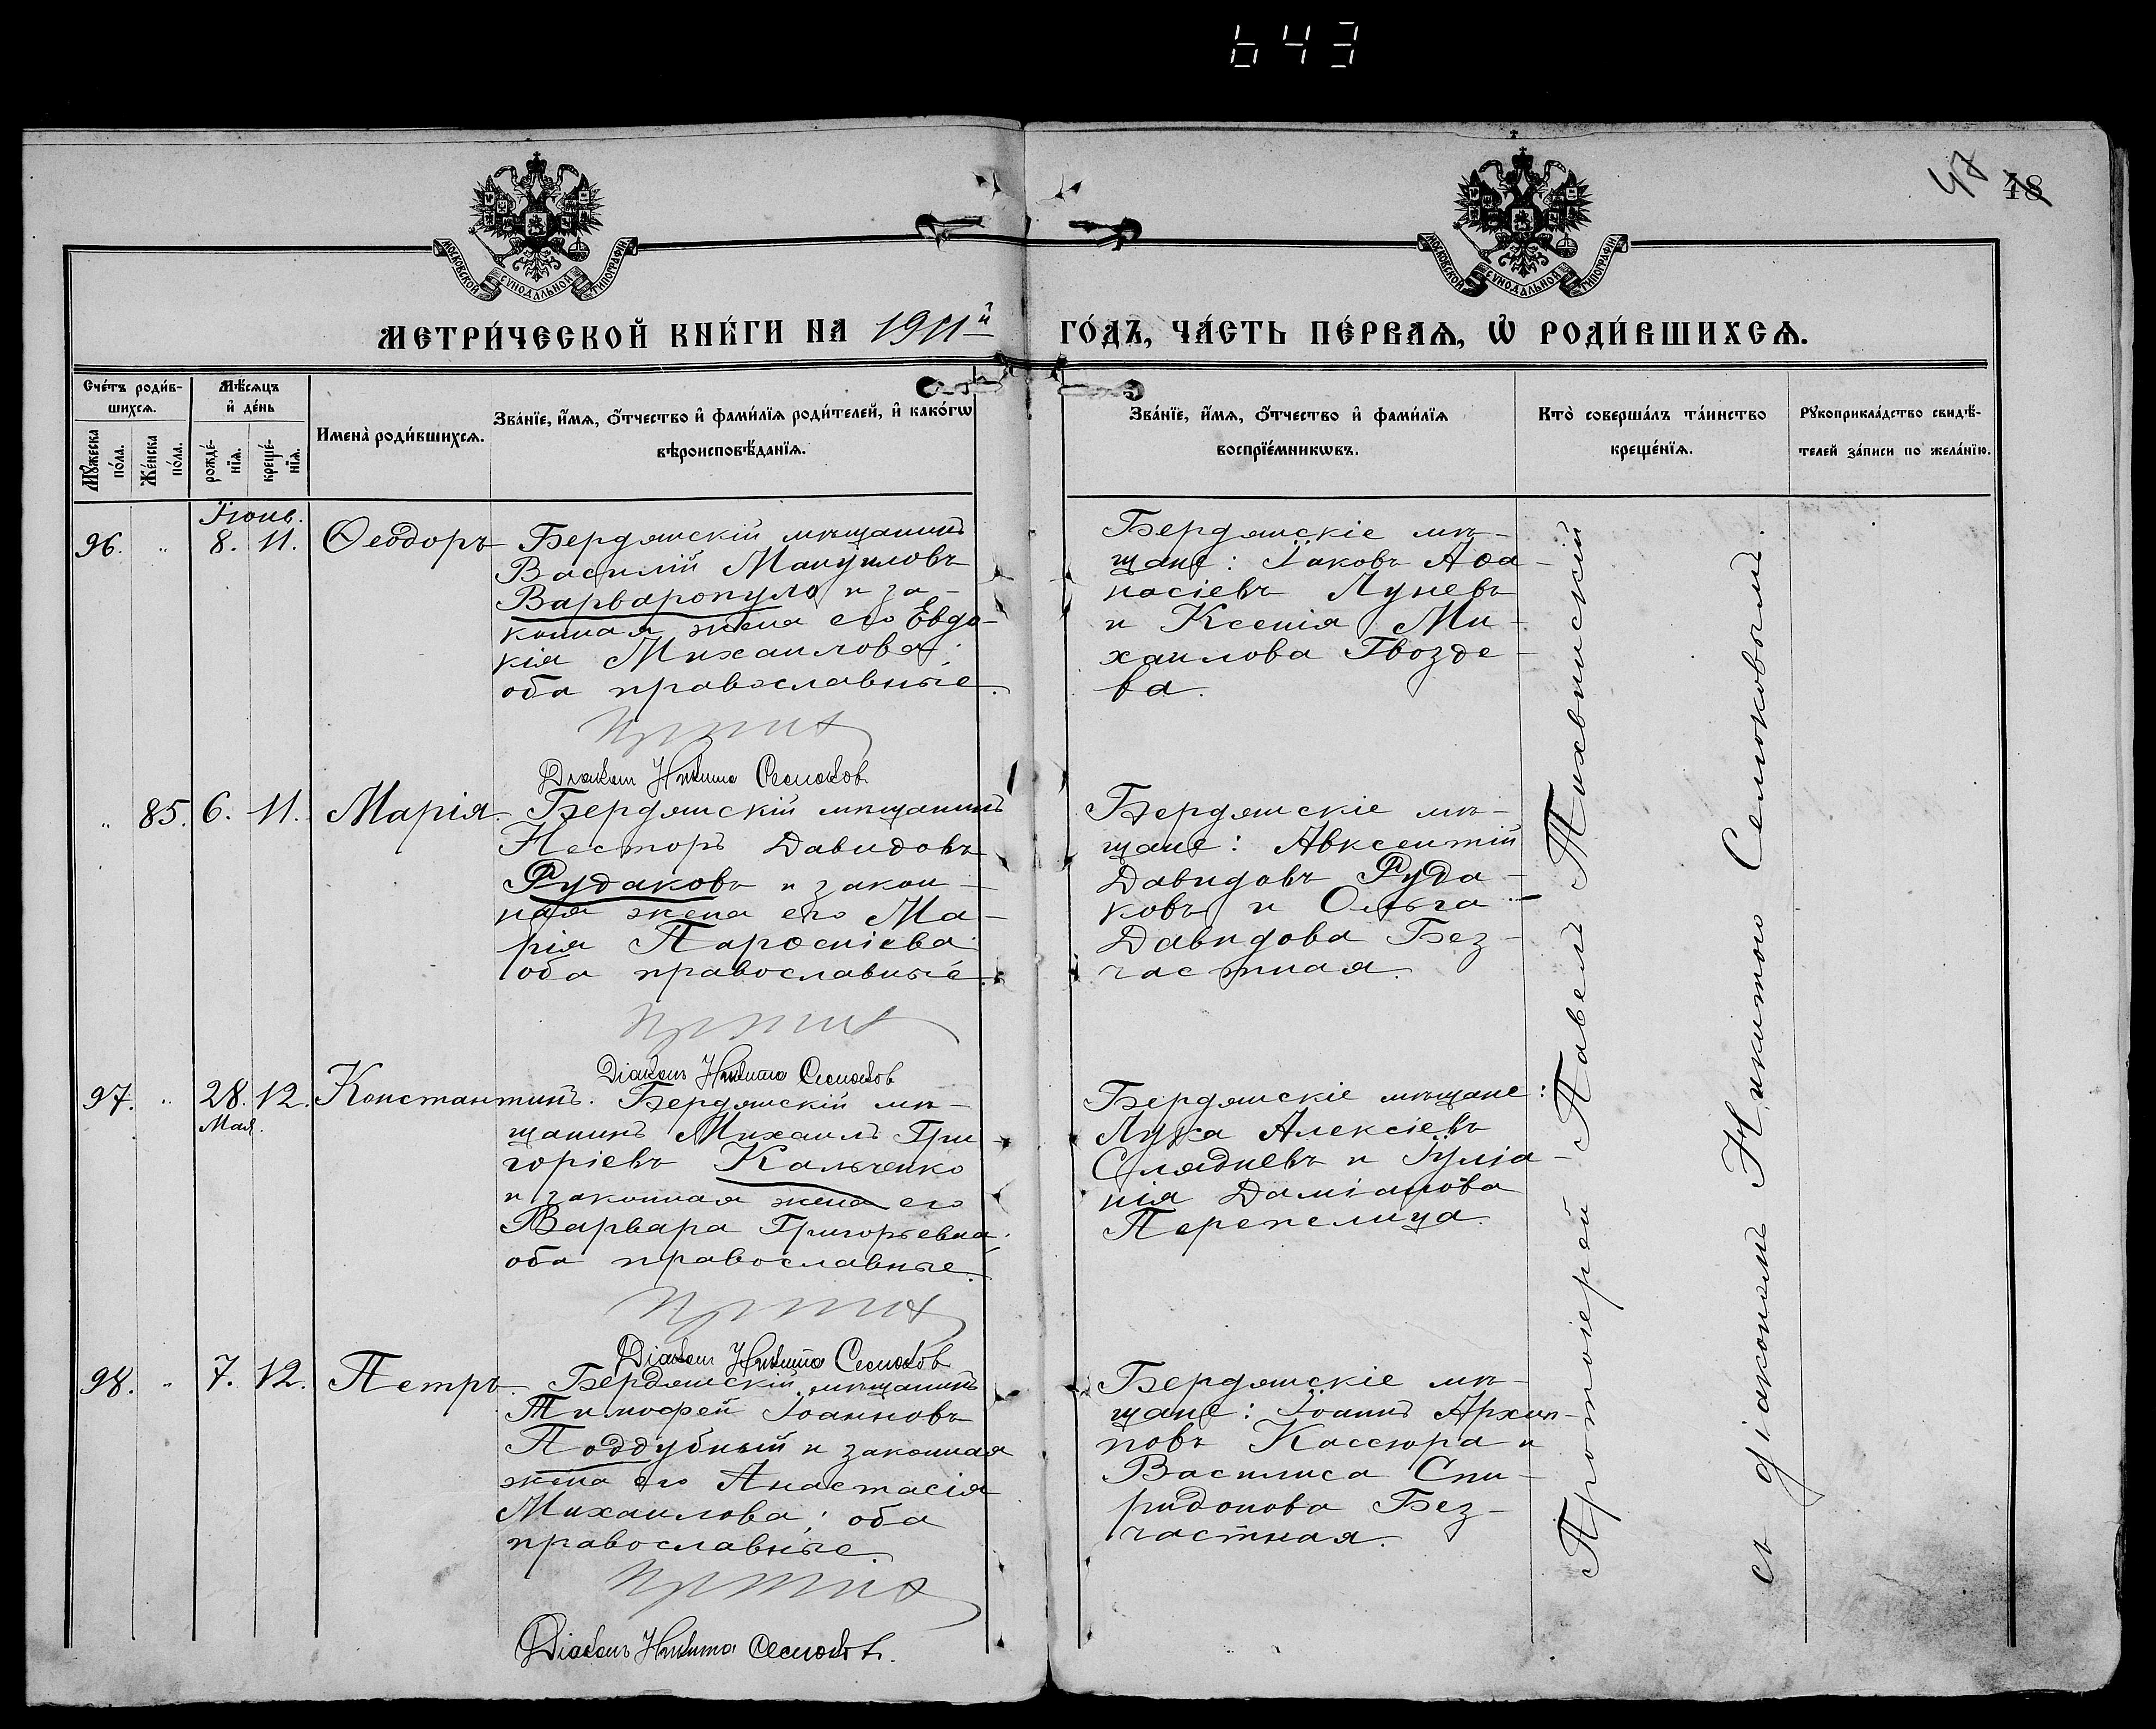 643
47 48
МОСКОВСКОЙ СУНОДАЛЬНОЙ ТИПОГРАФІИ
МОСКОВСКОЙ СУНОДАЛЬНОЙ ТИПОГРАФІИ
МЕТРИ́ЧЕСКОЙ КНИ́ГИ НА 1911й ГО́ДЪ, ЧА́СТЬ ПЕ́РВАѦ, Ѡ РОДИ́ВШИХСѦ.
Сче́тъ роди́в-
шихсѧ.
Мꙋ́жеска
по́ла.
Же́нска
по́ла.
Мѣ́сѧцъ
и де́нь
рожде́-
нїѧ.
креще́-
нїѧ.
Имена̀ роди́вшихсѧ.
Зва́нїе, и́мѧ, ѻ́тчество и фами́лїѧ роди́телей, и како́гѡ
вѣроисповѣ́данїѧ.
Зва́нїе, и́мѧ, ѻ́тчество и фами́лїѧ
воспрїе́мникѡвъ.
Кто̀ соверша́лъ та́инство
креще́нїѧ.
Рꙋкоприкла́дство свидѣ́-
телей за́писи по жела́нїю.
Іюнь.
96. „ 8. 11. Ѳеодоръ
Бердянскій мѣщанинъ
Василій Мануиловъ
Варваропуло и за-
конная жена его Евдо-
кія Михаилова;
оба православные.
Діаконъ Никита Семоков
Бердянскіе мѣ-
щане: Іаковъ Аѳа-
насіевъ Луневъ
и Ксенія Ми-
хаилова Гвозде-
ва.
„ 85. 6. 11. Марія.
Бердянскій мѣщанинъ
Несторъ Давидовъ
Рудаковъ и закон-
ная жена его Ма-
рія Парѳеніева
оба православные.
Діаконъ Никита Семоков
Бердянскіе мѣ-
щане: Авксентій
Давидовъ Руда-
ковъ и Ольга
Давидова Без-
частная.
97. „ 28. 12. Константинъ.
Мая.
Бердянскій мѣ-
щанинъ Михаилъ Гри-
горіевъ Кальченко
и законная жена его
Варвара Григорьевна;
оба православные.
Діаконъ Никита Семоков
Бердянскіе мѣщане:
Лука Алексіевъ
Слядневъ и Іуліа-
нія Даміанова
Перепелица.
98. „ 7. 12. Петръ.
Бердянскій мѣщанинъ
Тимоѳей Іоанновъ
Поддубный и законная
жена его Анастасія
Михаилова; оба
православные.
Діаконъ Никита Семоков.
Бердянскіе мѣ-
щане: Іоаннъ Архип-
повъ Кассюра и
Василиса Спи-
ридонова Без-
частная.
Протоіерей Павелъ Тихвинскій
съ діакономъ Никитою Семоковымъ.